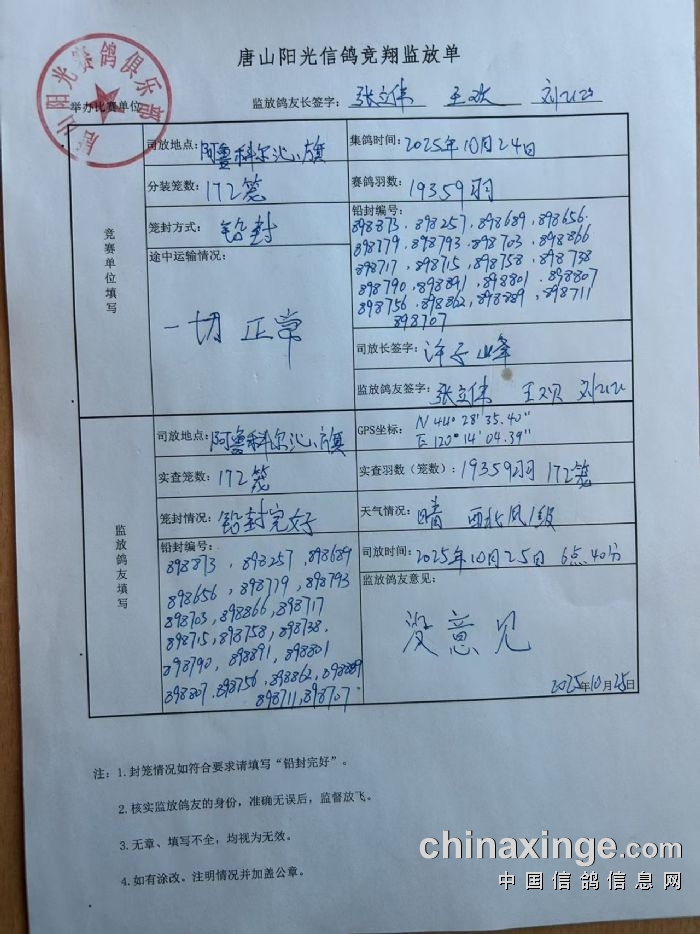 唐山阳光信鸽竞翔监放单
唐山阳光赛鸽俱乐部
举办比赛单位
监放鸽友长签字: 张立伟 王欢
竞赛单位填写
司放地点: 阿鲁科尔沁旗
集鸽时间: 2025年10月24日
分装笼数: 172笼
赛鸽羽数: 19359羽
笼封方式: 铅封
铅封编号:
898873、898257、898689、898656.
898779、898793、898703、898866
898717、898715、898758、898738
898790、898891、898801、898807
898756、898862、898889、898711
898707
途中运输情况:
一切正常
司放长签字: 许子峰
监放鸽友签字: 张立伟 王欢
监放鸽友填写
司放地点: 阿鲁科尔沁旗
GPS坐标: N 44° 28' 35.40"
E 120° 14' 04.39"
实查笼数: 172笼
实查羽数(笼数): 19359羽 172笼
笼封情况: 铅封完好
天气情况: 晴 西北风1级
铅封编号:
898873、898257、898689
898656、898779、898793
898703、898866、898717
898715、898758、898738、
898790、898891、898801
898807、898756、898862、898889
898711、898707
司放时间: 2025年10月25日 6点40分
监放鸽友意见:
没意见
2025年10月25日
注: 1.封笼情况如符合要求请填写“铅封完好”。
2.核实监放鸽友的身份，准确无误后，监督放飞。
3.无章、填写不全，均视为无效。
4.如有涂改。注明情况并加盖公章。
chinaxinge.com
中国信鸽信息网